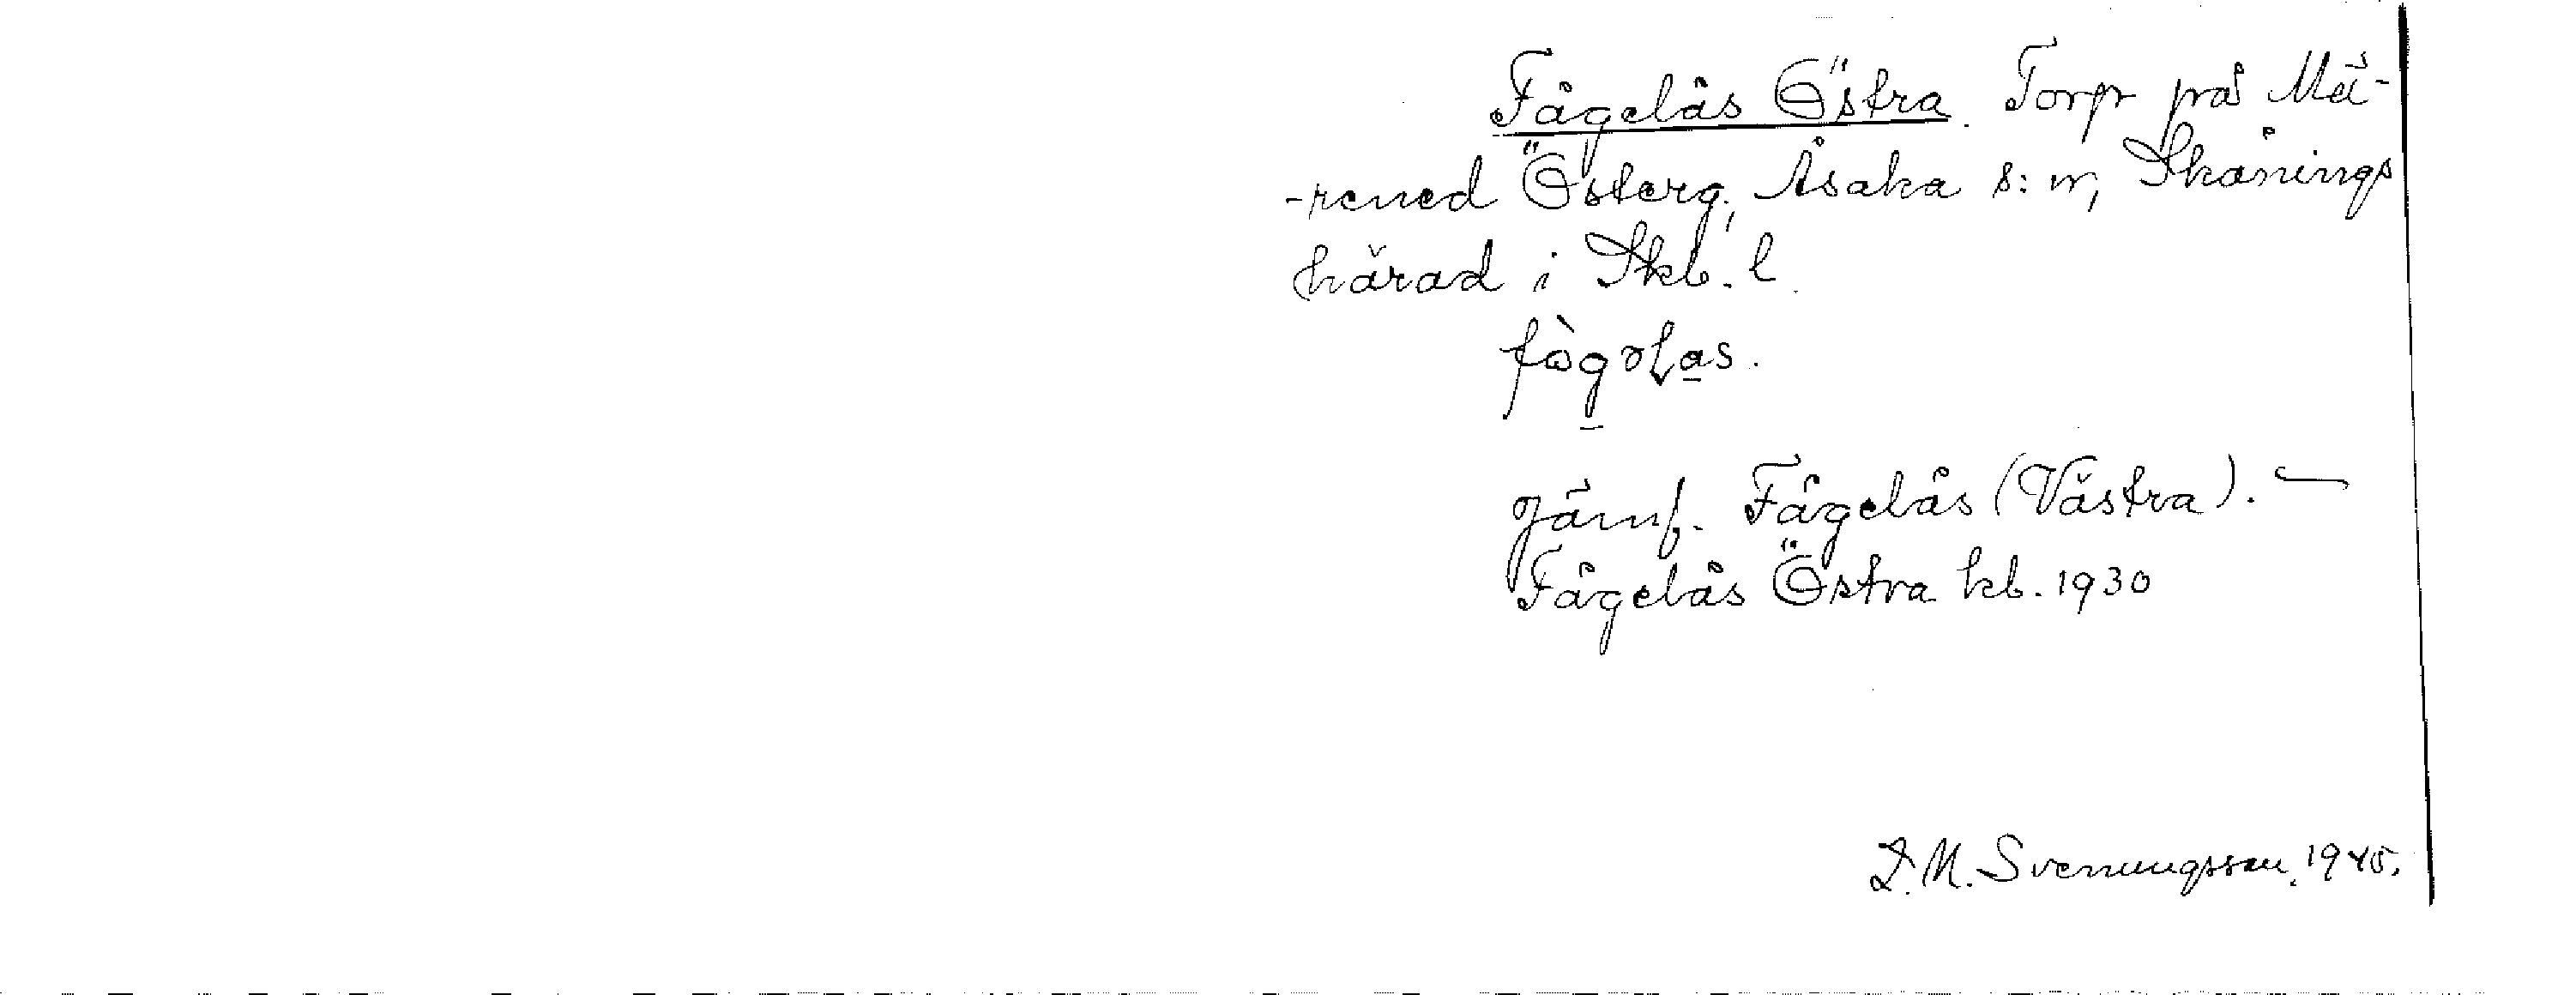 Fågelås Östra. Torp på Mä-
-rened Österg., Åsaka s:n, Skånings
härad i Skb. l.
Jämf. Fågelås (Västra). —
Fågelås Östra kb. 1930
D. M. Svenungsson. 1945.